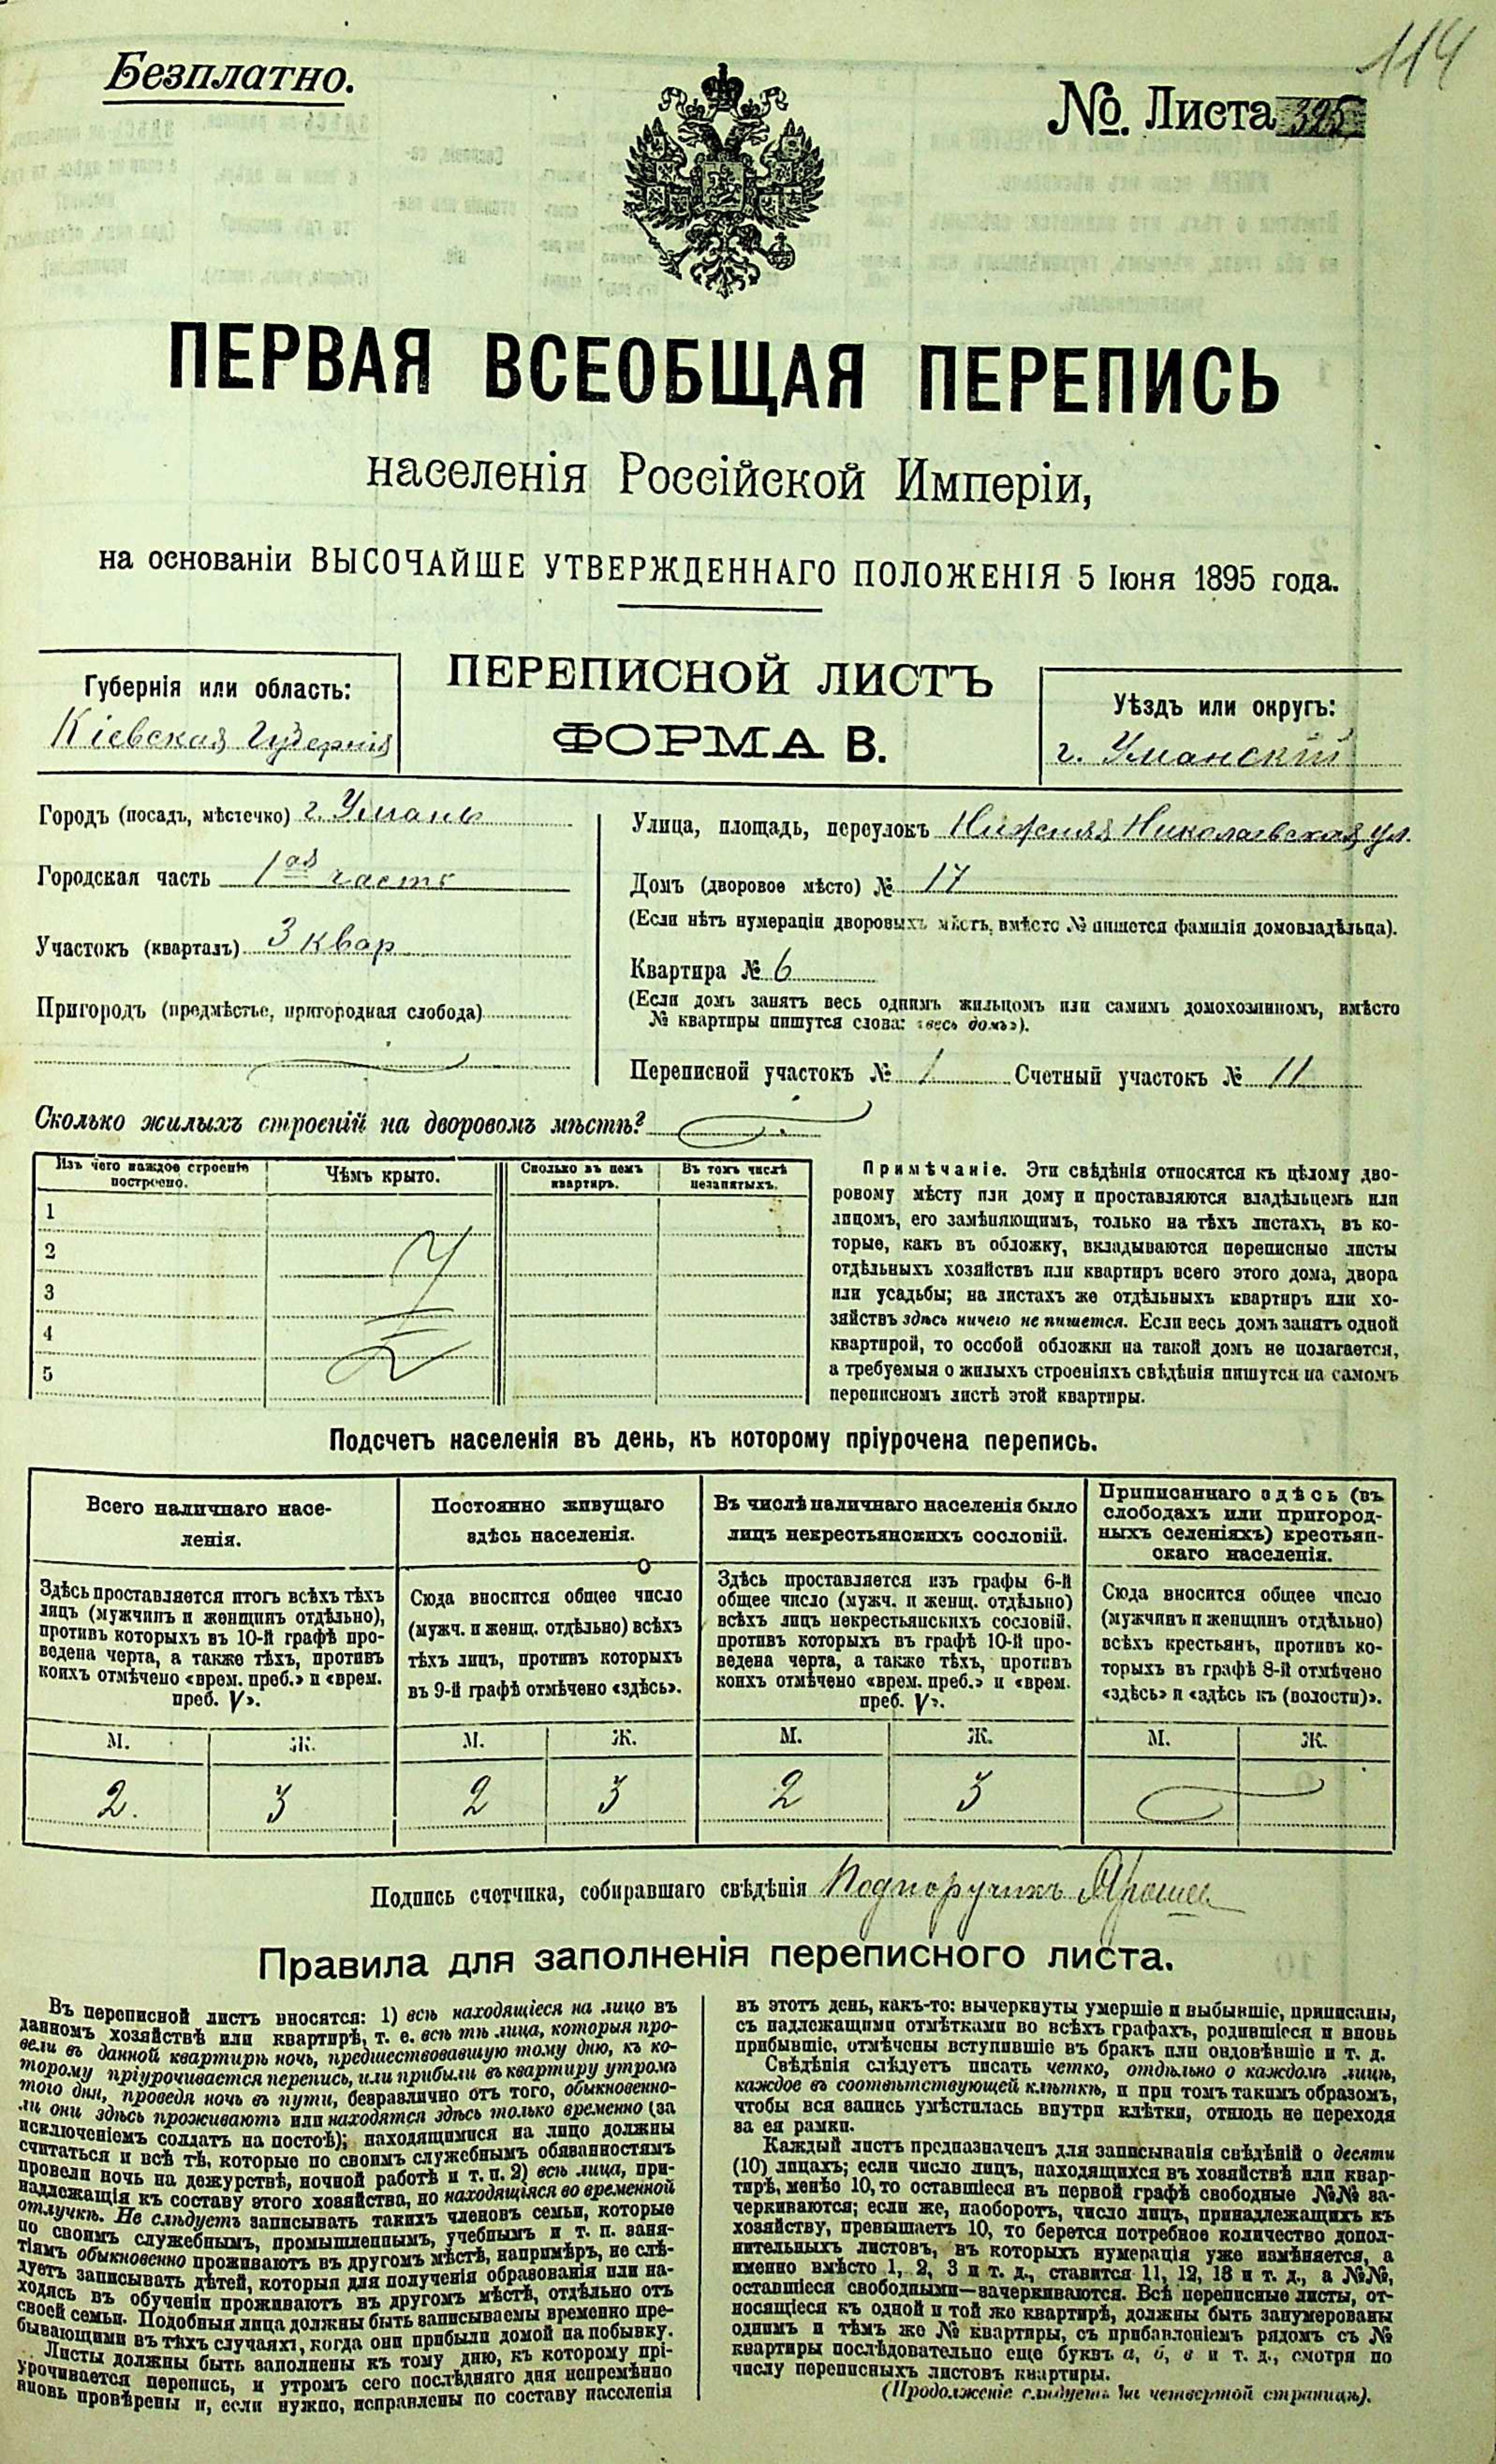 114
Безплатно.
№. Листа 325
ПЕРВАЯ ВСЕОБЩАЯ ПЕРЕПИСЬ
населенія Россійской Имперіи,
на основаніи ВЫСОЧАЙШЕ УТВЕРЖДЕННАГО ПОЛОЖЕНІЯ 5 Іюня 1895 года.
ПЕРЕПИСНОЙ ЛИСТЪ
ФОРМА В.
Губернія или область:
Кіевская Губернія
Уѣздъ или округъ:
г. Уманскій
Городъ (посадъ, мѣстечко) г. Умань
Городская часть 1ая часть
Участокъ (кварталъ) 3 квар
Пригородъ (предмѣстье, пригородная слобода)
Улица, площадь, переулокъ Нижняя Николаевская ул.
Домъ (дворовое мѣсто) № 17
(Если нѣтъ нумераціи дворовыхъ мѣстъ, вмѣсто № пишется фамилія домовладѣльца).
Квартира № 6
(Если домъ занятъ весь однимъ жильцомъ или самимъ домохозяиномъ, вмѣсто
№ квартиры пишутся слова: «весь домъ»).
Переписной участокъ № 1 Счетный участокъ № 11
Сколько жилыхъ строеній на дворовомъ мѣстѣ?
Изъ чего каждое строеніе
построено.
Чѣмъ крыто.
Сколько въ немъ
квартиръ.
Въ томъ числѣ
незанятыхъ.
1
2
3
4
5
Примѣчаніе. Эти свѣдѣнія относятся къ цѣлому дво-
ровому мѣсту или дому и проставляются владѣльцемъ или
лицомъ, его замѣняющимъ, только на тѣхъ листахъ, въ ко-
торые, какъ въ обложку, вкладываются переписные листы
отдѣльныхъ хозяйствъ или квартиръ всего этого дома, двора
или усадьбы; на листахъ же отдѣльныхъ квартиръ или хо-
зяйствъ здѣсь ничего не пишется. Если весь домъ занятъ одной
квартирой, то особой обложки на такой домъ не полагается,
а требуемыя о жилыхъ строеніяхъ свѣдѣнія пишутся на самомъ
переписномъ листѣ этой квартиры.
Подсчетъ населенія въ день, къ которому пріурочена перепись.
Всего наличнаго насе-
ленія.
Постоянно живущаго
здѣсь населенія.
Въ числѣ наличнаго населенія было
лицъ некрестьянскихъ сословій.
Приписаннаго здѣсь (въ
слободахъ или пригород-
ныхъ селеніяхъ) крестьян-
скаго населенія.
Здѣсь проставляется итогъ всѣхъ тѣхъ
лицъ (мужчинъ и женщинъ отдѣльно),
противъ которыхъ въ 10-й графѣ про-
ведена черта, а также тѣхъ, противъ
коихъ отмѣчено «врем. преб.» и «врем.
преб. V».
Сюда вносится общее число
(мужч. и женщ. отдѣльно) всѣхъ
тѣхъ лицъ, противъ которыхъ
въ 9-й графѣ отмѣчено «здѣсь».
Здѣсь проставляется изъ графы 6-й
общее число (мужч. и женщ. отдѣльно)
всѣхъ лицъ некрестьянскихъ сословій,
противъ которыхъ въ графѣ 10-й про-
ведена черта, а также тѣхъ, противъ
коихъ отмѣчено «врем. преб.» и «врем.
преб. V».
Сюда вносится общее число
(мужчинъ и женщинъ отдѣльно)
всѣхъ крестьянъ, противъ ко-
торыхъ въ графѣ 8-й отмѣчено
«здѣсь» и «здѣсь къ (волости)».
М. Ж. М. Ж. М. Ж. М. Ж.
2. 3 2 3 2 3
Подпись счетчика, собиравшаго свѣдѣнія Подпоручикъ
Правила для заполненія переписного листа.
Въ переписной листъ вносятся: 1) всѣ находящіеся на лицо въ
данномъ хозяйствѣ или квартирѣ, т. е. всѣ тѣ лица, которыя про-
вели въ данной квартирѣ ночь, предшествовавшую тому дню, къ ко-
торому пріурочивается перепись, или прибыли въ квартиру утромъ
того дня, проведя ночь въ пути, безразлично отъ того, обыкновенно-
ли они здѣсь проживаютъ или находятся здѣсь только временно (за
исключеніемъ солдатъ на постоѣ); находящимися на лицо должны
считаться и всѣ тѣ, которые по своимъ служебнымъ обязанностямъ
провели ночь на дежурствѣ, ночной работѣ и т. п. 2) всѣ лица, при-
надлежащія къ составу этого хозяйства, но находящіяся во временной
отлучкѣ. Не слѣдуетъ записывать такихъ членовъ семьи, которые
по своимъ служебнымъ, промышленнымъ, учебнымъ и т. п. заня-
тіямъ обыкновенно проживаютъ въ другомъ мѣстѣ, напримѣръ, не слѣ-
дуетъ записывать дѣтей, которыя для полученія образованія или на-
ходясь въ обученіи проживаютъ въ другомъ мѣстѣ, отдѣльно отъ
своей семьи. Подобныя лица должны быть записываемы временно пре-
бывающими въ тѣхъ случаяхъ, когда они прибыли домой на побывку.
Листы должны быть заполнены къ тому дню, къ которому прі-
урочивается перепись, и утромъ сего послѣдняго дня непремѣнно
вновь провѣрены и, если нужно, исправлены по составу населенія
въ этотъ день, какъ-то: вычеркнуты умершіе и выбывшіе, приписаны,
съ надлежащими отмѣтками во всѣхъ графахъ, родившіеся и вновь
прибывшіе, отмѣчены вступившіе въ бракъ или овдовѣвшіе и т. д.
Свѣдѣнія слѣдуетъ писать четко, отдѣльно о каждомъ лицѣ,
каждое въ соотвѣтствующей клѣткѣ, и при томъ такимъ образомъ,
чтобы вся запись умѣстилась внутри клѣтки, отнюдь не переходя
за ея рамки.
Каждый листъ предназначенъ для записыванія свѣдѣній о десяти
(10) лицахъ; если число лицъ, находящихся въ хозяйствѣ или квар-
тирѣ, менѣе 10, то оставшіеся въ первой графѣ свободные №№ за-
черкиваются; если же, наоборотъ, число лицъ, принадлежащихъ къ
хозяйству, превышаетъ 10, то берется потребное количество допол-
нительныхъ листовъ, въ которыхъ нумерація уже измѣняется, а
именно вмѣсто 1, 2, 3 и т. д., ставится 11, 12, 13 и т. д., а №№,
оставшіеся свободными—зачеркиваются. Всѣ переписные листы, от-
носящіеся къ одной и той же квартирѣ, должны быть занумерованы
однимъ и тѣмъ же № квартиры, съ прибавленіемъ рядомъ съ №
квартиры послѣдовательно еще буквъ а, б, в и т. д., смотря по
числу переписныхъ листовъ квартиры.
(Продолженіе слѣдуетъ на четвертой страницѣ).